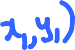 x₁,y₁)